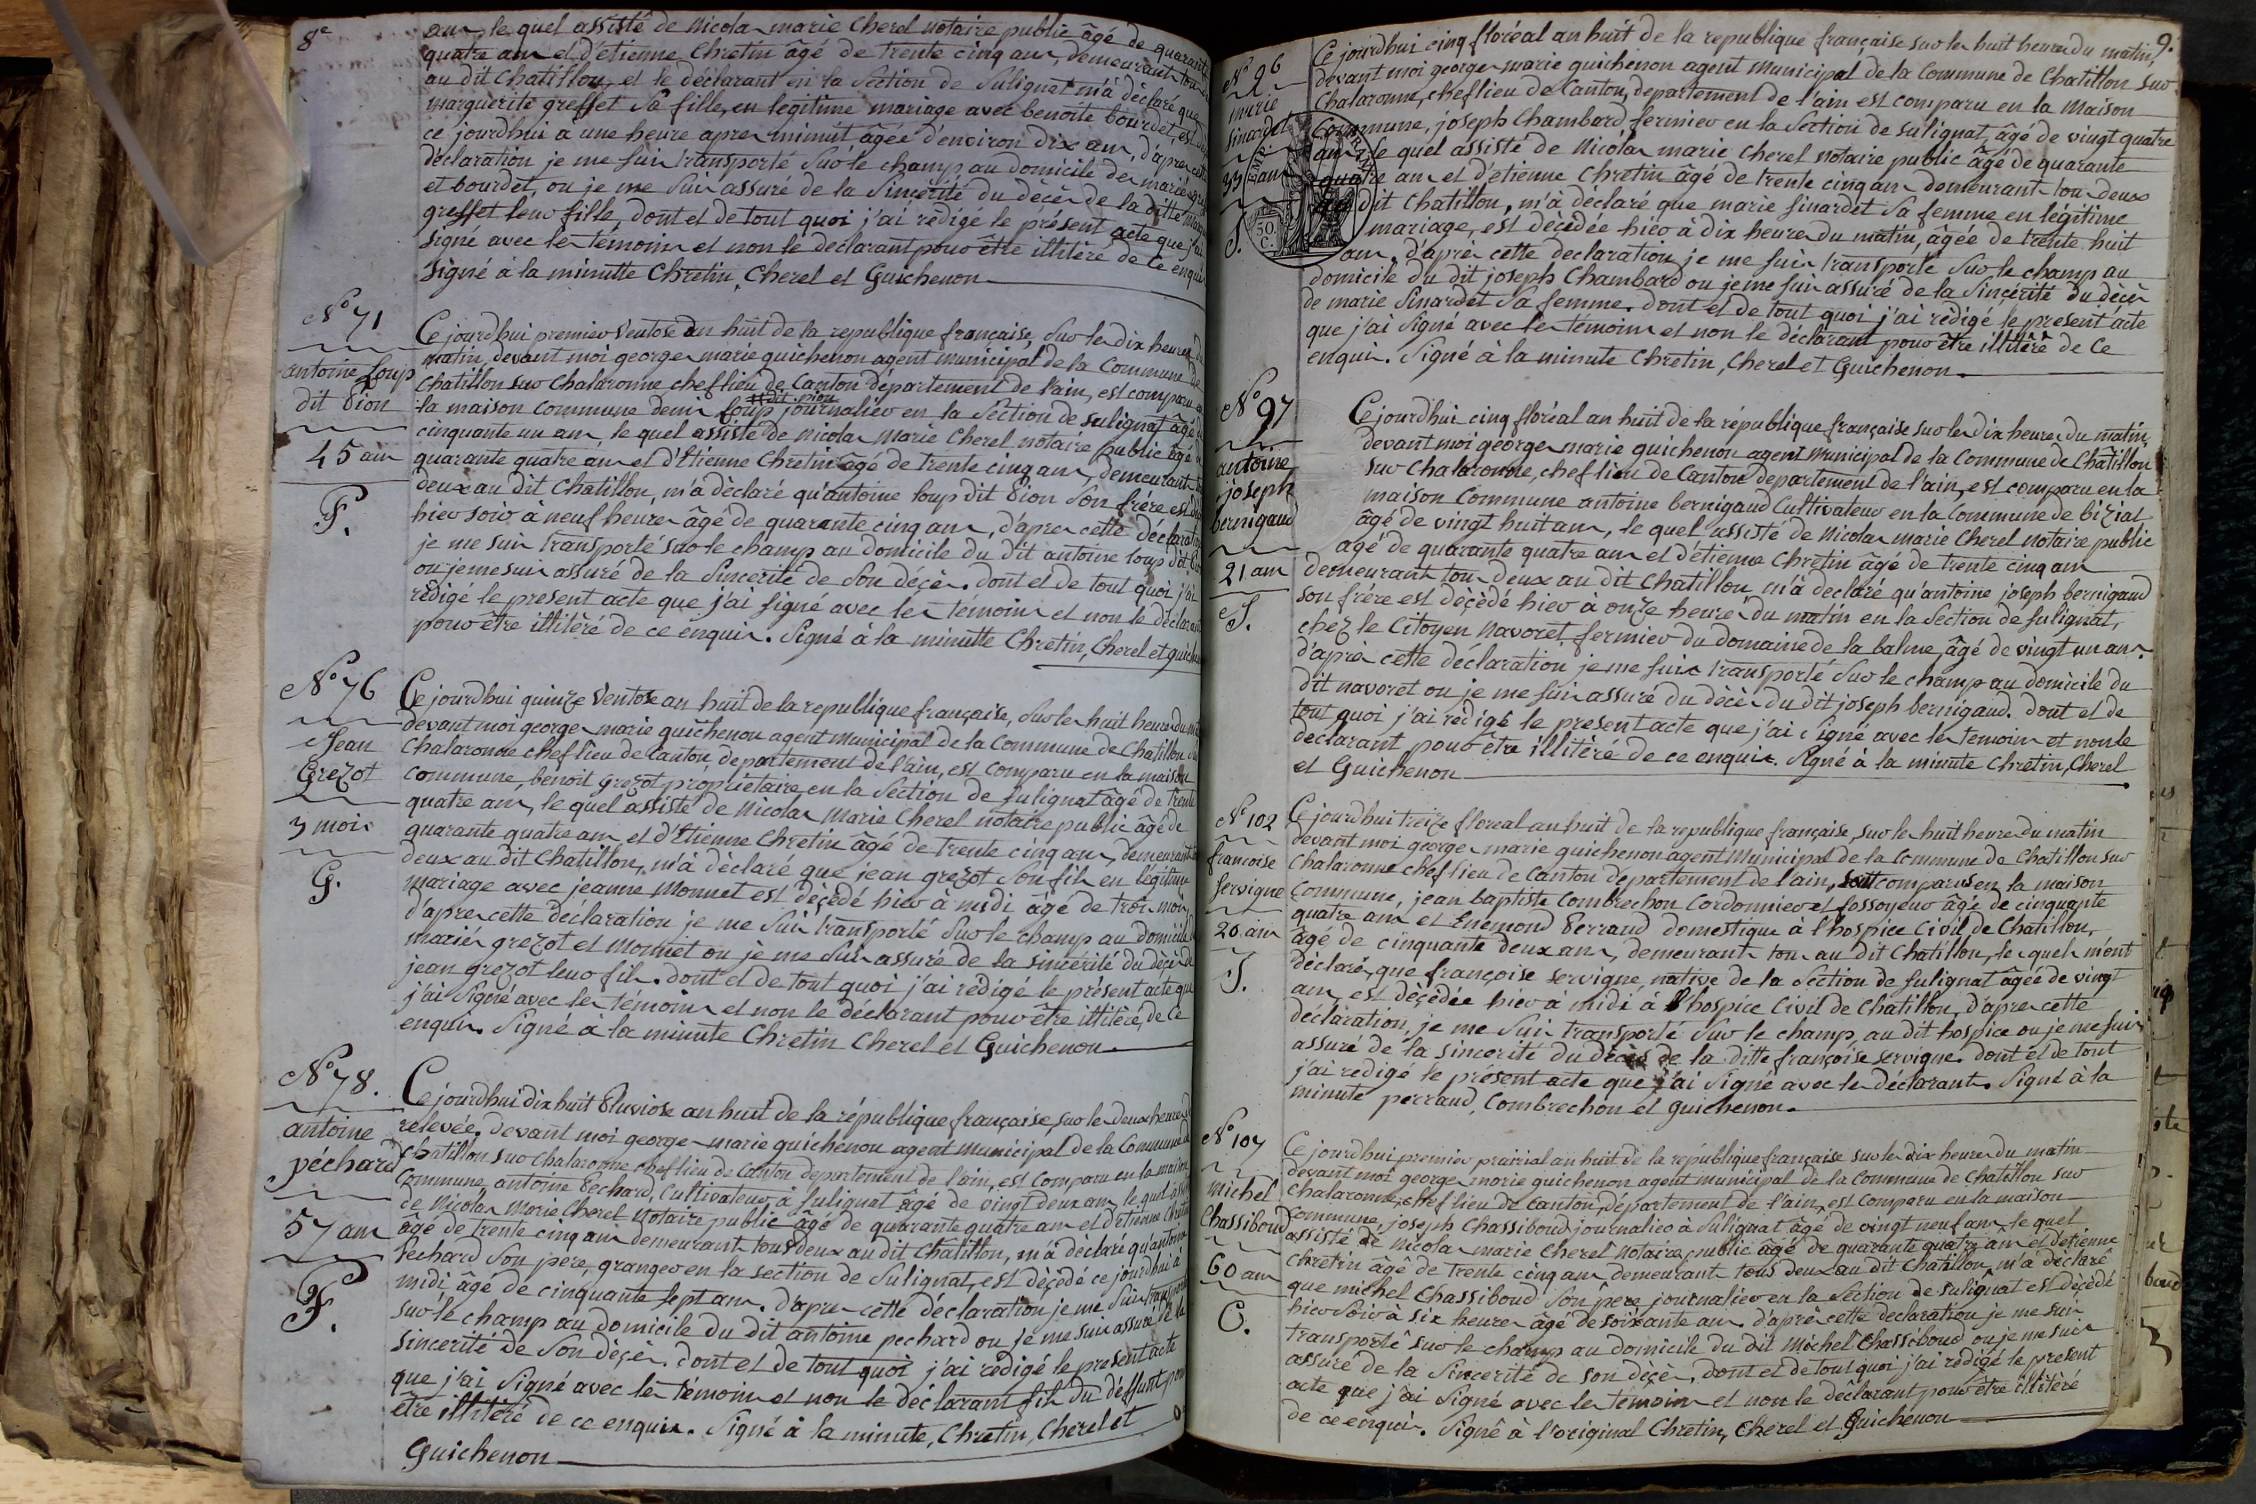 8e
ans, le quel assisté de Nicolas marie Cherel notaire public âgé de quarante
quatre ans et d'etienne Chretin âgé de trente cinq ans, demeurant tous
au dit Chatillon, et le déclarant en la Section de Sulignat m'a déclaré que
marguerite greffet sa fille, en legitime mariage avec benoite bourdet, est
ce jourdhui a une heure apres minuit âgée d'environ dix ans, d'apres cette
déclaration je me suis transporté sur le champ, au domicile des mariés
et bourdet, ou je me suis assuré de la Sincérité du décès de la ditte
greffet leur fille, dont et de tout quoi j'ai rédigé le présent acte que j'ai
signé avec les témoins et non le declarant pour être illitéré de ce enquis
signé à la minutte Chretin, Cherel et Guichenon
No 71
antoine Loup
dit Pion
45 ans
P.
Ce jourdhui premier Ventose an huit de la republique française, sur les dix heures du
matin, devant moi george marie guichenon agent municipal de la Commune de
Chatillon sur Chalaronne chef lieu de Canton département de l'ain, est comparu en
dit pion
la maison commune denis Loup journalier en la Section de sulignat âgé de
cinquante un ans, le quel assisté de Nicolas Marie Cherel notaire public âgé de
quarante quatre ans et d'Etienne Chretin âgé de trente cinq ans, demeurant
deux au dit Chatillon, m'a déclaré qu'antoine loup dit Pion son frére est
hier soir à neuf heures âgé de quarante cinq ans, d'apres cette déclaration
je me suis transporté sur le champ au domicile du dit antoine loup dit Pion
ou je me suis assuré de la sincerité de son décès. dont et de tout quoi j'ai
rédigé le present acte que j'ai signé avec les témoins et non le déclarant
pour être illitéré de ce enquis. Signé à la minutte Chretin, Cherel et guichenon
No 76
Jean
Grezot
3 mois
G.
Ce jourdhui quinze Ventose an huit de la republique française, sur les huit heures du
devant moi george marie guichenon agent municipal de la Commune de Chatillon
Chalaronne chef lieu de Canton, departement de l'ain, est comparu en la maison
commune, benoit Grezot propriétaire en la Section de Sulignat âgé de trente
quatre ans, le quel assisté de Nicolas Marie Cherel notaire public âgé de
quarante quatre ans et d'Etienne Chretin âgé de trente cinq ans, demeurant
deux au dit Chatillon, m'a déclaré que jean grezot son fils en légitime
mariage avec jeanne Monnet est décédé hier à midi âgé de trois mois
d'apres cette déclaration je me suis transporté sur le champ au domicile
mariés grezot et Monnet ou je me suis assuré de la sincérité du décès de
jean grezot leur fils. dont et de tout quoi j'ai rédigé le présent acte que
j'ai signé avec les témoins et non le déclarant pour être illitéré, de ce
enquis. Signé à la minute Chretin Cherel et Guichenon
No 78.
antoine
péchard
57 ans
P.
Ce jourdhui dix huit Pluviose an huit de la république française, sur les deux heures de
relevée. devant moi george marie guichenon agent municipal de la Commune de
Chatillon sur Chalaronne chef lieu de Canton departement de l'ain, est comparu en la maison
Commune, antoine Pechard, Cultivateur à Sulignat âgé de vingt deux ans le quel assisté
de Nicolas Marie Cherel Notaire public âgé de quarante quatre ans et d'etienne Chretin
âgé de trente cinq ans demeurant tous deux au dit Chatillon, m'a déclaré qu'antoine
Pechard son pere, granger en la section de Sulignat, est décédé ce jourdhui à
midi âgé de cinquante sept ans. d'apres cette déclaration je me suis transporté
sur le champ au domicile du dit antoine pechard ou je me suis assuré de la
sincerité de son décès. dont et de tout quoi j'ai rédigé le present acte
que j'ai signé avec les témoins et non le déclarant fils du déffunt pour
être illitéré de ce enquis. Signé à la minute, Chretin, Cherel et
Guichenon
9.
No 96
marie
sinardet
33 ans
S.
50.
C.
Ce jourdhui cinq floréal an huit de la republique française sur les huit heures du matin,
devant moi george marie guichenon agent Municipal de la Commune de Chatillon sur
Chalaronne, chef lieu de Canton, departement de l'ain est comparu en la Maison
Commune, joseph Chambard fermier en la Section de sulignat, âgé de vingt quatre
ans le quel assisté de Nicolas marie Cherel notaire public âgé de quarante
quatre ans et d'etienne Chretin âgé de trente cinq ans demeurant tous deux
au dit Chatillon, m'a déclaré que marie sinardet sa femme en légitime
mariage, est décédée hier à dix heures du matin, âgée de trente huit
ans. d'après cette déclaration je me suis transporté sur le champ au
domicile du dit joseph Chambard ou je me suis assuré de la Sincérité du décès
de marie Sinardet sa femme. dont et de tout quoi j'ai rédigé le present acte
que j'ai signé avec les témoins et non le déclarant pour être illitéré de ce
enquis. Signé à la minute Chretin, Cherel et Guichenon.
No 97
antoine
joseph
bernigaud
21 ans
S.
Ce jourdhui cinq floréal an huit de la république française sur les dix heures du matin
devant moi george marie guichenon agent Municipal de la Commune de Châtillon
sur Chalaronne, chef lieu de Canton departement de l'ain, est comparu en la
maison Commune antoine bernigaud Cultivateur en la Commune de biziat
âgé de vingt huit ans, le quel assisté de Nicolas marie Cherel notaire public
agé de quarante quatre ans et d'etienne Chretin âgé de trente cinq ans
demeurant tous deux au dit Chatillon m'a declaré qu'antoine joseph bernigaud
son frére est décédé hier à onze heures du matin en la Section de sulignat,
chez le Citoyen Navoret, fermier du domaine de la balme, âgé de vingt un ans.
d'après cette déclaration je me suis transporté sur le champ au domicile du
dit navoret ou je me suis assuré du décès du dit joseph bernigaud. dont et de
tout quoi j'ai rédigé le present acte que j'ai signé avec les temoins et non le
declarant pour être illitéré de ce enquis. Signé à la minute Chretin, Cherel
et Guichenon
No 102
francoise
servigne
20 ans
S.
Ce jourdhui treize floreal an huit de la republique française, sur les huit heures du matin
devant moi george marie guichenon agent Municipal de la Commune de Chatillon sur
Chalaronne chef lieu de Canton departement de l'ain, sont comparus en la maison
Commune, jean baptiste Combrechon Cordonnier et fossoyeur âgé de cinquante
quatre ans et Enemond Perraud domestique à l'hospice Civil de Chatillon,
âgé de cinquante deux ans, demeurant tous au dit Chatillon, lesquels m'ont
déclaré, que françoise servigne, native de la Section de sulignat âgée de vingt
ans est décédée hier a midi à l'hospice Civil de Chatillon, d'apres cette
déclaration, je me suis transporté sur le champ, au dit hospice ou je me suis
assuré de la sincerité du décès de la ditte françoise servigne. dont et de tout
j'ai redigé le présent acte que j'ai signé avec les déclarants. Signé à la
minute perraud, Combrechon et guichenon.
No 107
michel
Chassiboud
60 ans
C.
Ce jourdhui premier prairial an huit de la république française sur les dix heures du matin
devant moi george marie guichenon agent municipal de la Commune de Chatillon sur
Chalaronne, chef lieu de Canton, département de l'ain, est comparu en la maison
Commune, joseph Chassiboud journalier à Sulignat âgé de vingt neuf ans, le quel
assisté de Nicolas marie Cherel notaire public âgé de quarante quatre ans et d'etienne
Chretin âgé de trente cinq ans demeurant tous deux au dit Chatillon, m'a déclaré
que michel Chassiboud son pere journalier en la Section de sulignat est décédé
hier soir à six heures âgé de soixante ans. d'après cette declaration je me suis
transporté sur le champ au domicile du dit Michel Chassiboud ou je me suis
assuré de la Sincerité de son décès, dont et de tout quoi j'ai rédigé le present
acte que j'ai signé avec les témoins et non le déclarant pour être illitéré
de ce enquis. Signé à l'original Chretin, Cherel et Guichenon